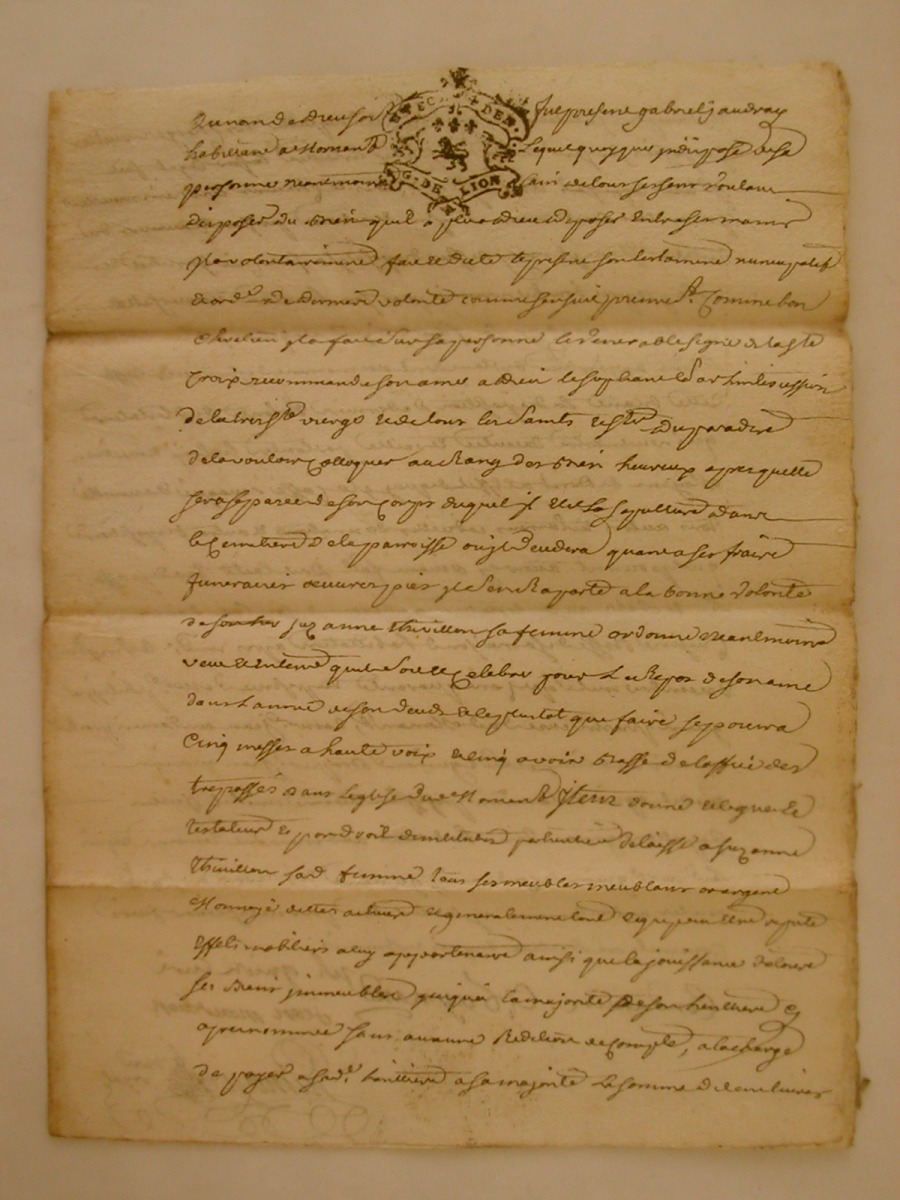 Au nom de dieu soit fut present gabriel jaudrax
habittant a Mornant lequel quoyque jndispose de sa
personne neanmoins sain de tous ses sens voulant
disposer du bien quil a plu a dieu disposer entre ses mains
jl a volontairement fait et dicté le present son testament nuncupatif
et ord.e de derniere volonté comme sensuit premierem.t Comme bon
Chretien jl a fait sur sa personne le Venerable signe de la ste
Croix recommande son ame a dieu le supliant par lintercession
de la tres ste vierge et de tous les saints et stes du paradis
de la vouloir Colloquer au Rang des bien heureux apres quelle
sera separeé de son Corps duquel jl elit la sepulture dans
le Cemettiere de la parroisse ou jl decedera quant a ses fraix
funeraires œuvres pies jl s'en Raporte a la bonne Volonté
de suzanne thivillon sa femme ordonne neantmoins
veut et entend quil soit Celebré pour le Repos de son ame
dans l'année de son deces et le plustot que faire se pourra
Cinq messes a haute voix et cinq a voix basse de l'office des
trepassés dans l'eglise de Mornant Jtem donne et legue le
testateur et par droit d'institution particuliere delaisse a suzanne
thivillon sad. femme tous ses meubles meublant or argent
Monnoyé dettes actives et generalement tout ce qui peut etre reputé
effets mobiliers a luy appartenant ainsi que la jouissance de tous
ses biens jmmeubles jusqua la majorité de son heritiere cy
apres nommée sans aucune Reddition de Compte, a la charge
de payer a sad.e heritiere a sa majorité la somme de livres